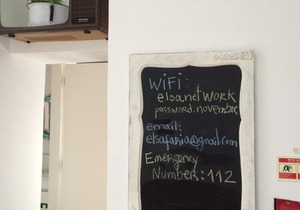 WiFi:
elsa.network
password.novembre
email:
elsafania@gmail.com
Emergency
Number:112